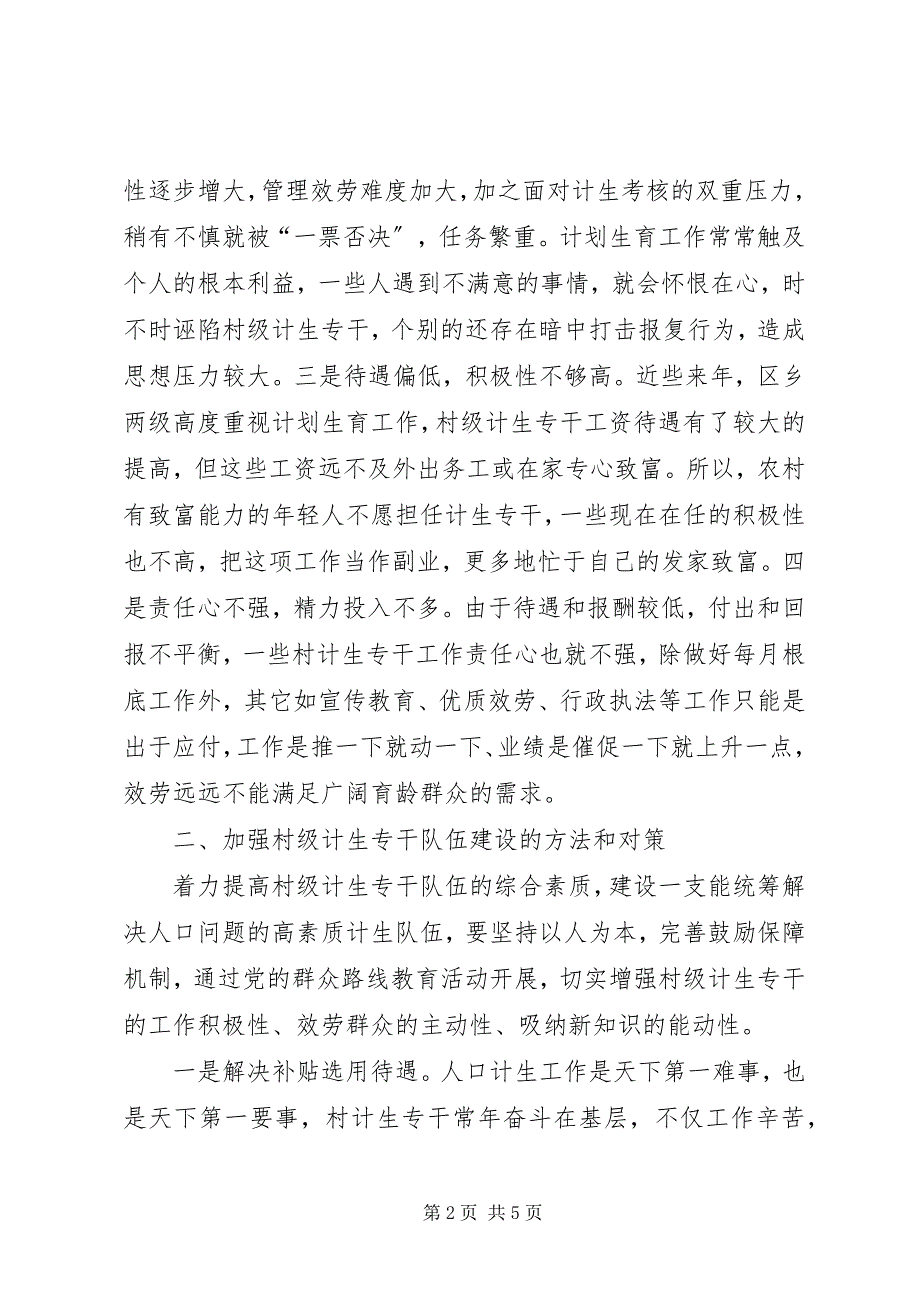 性逐步增大，管理效劳难度加大，加之面对计生考核的双重压力，
稍有不慎就被“一票否决〞，任务繁重。计划生育工作常常触及
个人的根本利益，一些人遇到不满意的事情，就会怀恨在心，时
不时诬陷村级计生专干，个别的还存在暗中打击报复行为，造成
思想压力较大。三是待遇偏低，积极性不够高。近些来年，区乡
两级高度重视计划生育工作，村级计生专干工资待遇有了较大的
提高，但这些工资远不及外出务工或在家专心致富。所以，农村
有致富能力的年轻人不愿担任计生专干，一些现在在任的积极性
也不高，把这项工作当作副业，更多地忙于自己的发家致富。四
是责任心不强，精力投入不多。由于待遇和报酬较低，付出和回
报不平衡，一些村计生专干工作责任心也就不强，除做好每月根
底工作外，其它如宣传教育、优质效劳、行政执法等工作只能是
出于应付，工作是推一下就动一下、业绩是催促一下就上升一点，
效劳远远不能满足广阔育龄群众的需求。
二、加强村级计生专干队伍建设的方法和对策
着力提高村级计生专干队伍的综合素质，建设一支能统筹解
决人口问题的高素质计生队伍，要坚持以人为本，完善鼓励保障
机制，通过党的群众路线教育活动开展，切实增强村级计生专干
的工作积极性、效劳群众的主动性、吸纳新知识的能动性。
一是解决补贴选用待遇。人口计生工作是天下第一难事，也
是天下第一要事，村计生专干常年奋斗在基层，不仅工作辛苦，
第 2 页 共 5 页